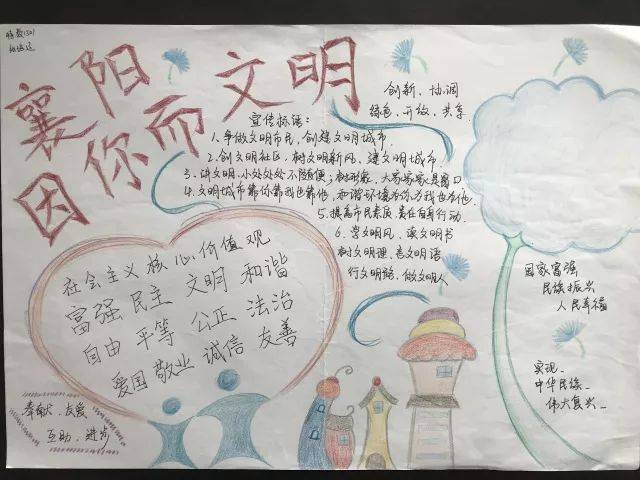 襄阳
因你而文明
创新、协调
绿色、开放、共享
宣传标语：
1、争做文明市民，创建文明城市
2、创文明社区，树文明新风，建文明城市
3、讲文明，小处处处不随便；树形象，大家家家是窗口
4、文明城市靠你靠我也靠他，和谐环境为你为我也为他
5、提高市民素质，责任自身行动.
6、学文明风、读文明书
树文明理、走文明语
行文明路、做文明人
社会主义核心价值观
富强 民主 文明 和谐
自由 平等 公正 法治
爱国 敬业 诚信 友善
国家富强
民族振兴
人民幸福
实现
中华民族
伟大复兴
奉献、友爱
互助、进步